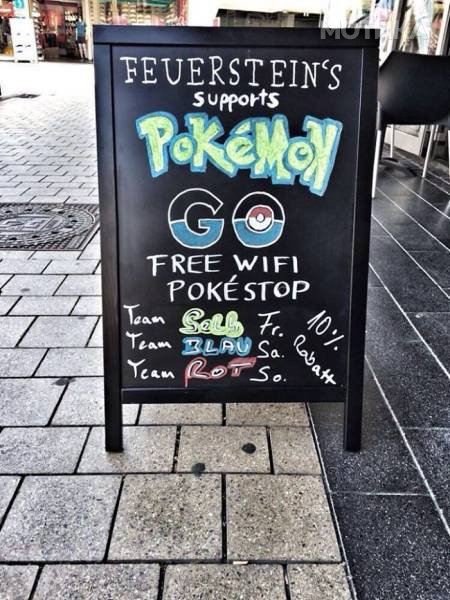 FEUERSTEIN'S
SUPPORTS
POKéMON
GO
FREE WIFI
POKÉSTOP
Team Gelb Fr.
Team BLAU Sa.
Team ROT So.
10% Rabatt